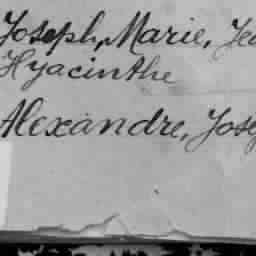 Joseph, Marie, Jea
Hyacinthe
Alexandre, Jose